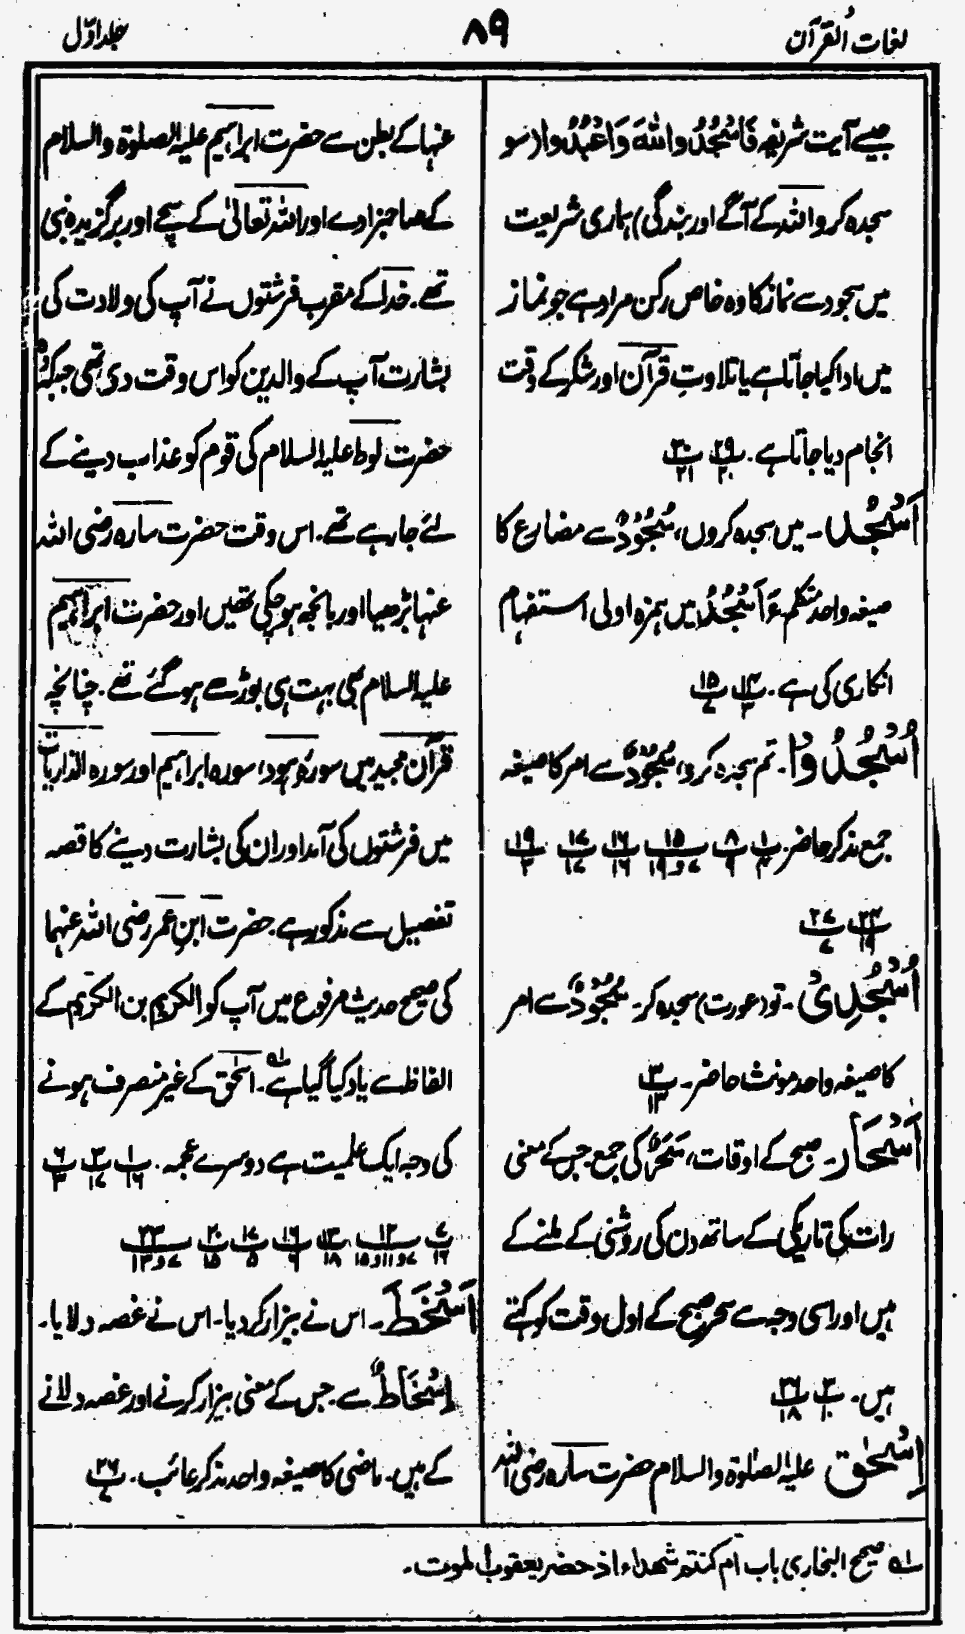 لغات القرآن
۸۹
جلد اوّل
جیسے آیت شریفہ فَاسْجُدُوا لِلّٰهِ وَاعْبُدُوا (سو
سجدہ کرو اللہ کے آگے اور بندگی) ہماری شریعت
میں سجود سے نماز کا وہ خاص رکن مراد ہے جو نماز
میں ادا کیا جاتا ہے یا تلاوتِ قرآن اور شکر کے وقت
انجام دیا جاتا ہے۔ پ۲۹/۲۰ پ۳۰/۲۱
اَسْجُدُ۔ میں سجدہ کروں، سُجُوْدٌ سے مضارع کا
صیغہ واحد متکلم، ءَاَسْجُدُ میں ہمزہ اولی استفہام
انکاری کی ہے۔ پ۱۴/۳ پ۱۵/۷
اُسْجُدُوْا۔ تم سجدہ کرو، سُجُوْدٌ سے امر کا صیغہ
جمع مذکر حاضر۔ پ۱/۴ پ۸/۹ پ۱۵/۷و۱۹ پ۱۶/۱۶ پ۱۷/۱۷ پ۱۹/۳
پ۲۴/۱۹ پ۲۷/۷
اُسْجُدِیْ۔ تو (عورت) سجدہ کر۔ سُجُوْدٌ سے امر
کا صیغہ واحد مونث حاضر۔ پ۳/۱۳
اَسْحَار۔ صبح کے اوقات، سَحَرٌ کی جمع جس کے معنی
رات کی تاریکی کے ساتھ دن کی روشنی کے ملنے کے
ہیں اور اسی وجہ سے سحر صبح کے اول وقت کو کہتے
ہیں۔ پ۳/۱۰ پ۲۶/۱۸
اِسْحٰق علیہ الصلٰوۃ والسلام حضرت سارہ رضی اللہ
عنہا کے بطن سے حضرت ابراہیم علیہ الصلوۃ والسلام
کے صاحبزادے اور اللہ تعالیٰ کے سچے اور برگزیدہ نبی
تھے۔ خدا کے مقرب فرشتوں نے آپ کی ولادت کی
بشارت آپ کے والدین کو اس وقت دی تھی جبکہ وہ
حضرت لوط علیہ السلام کی قوم کو عذاب دینے کے
لئے جارہے تھے۔ اس وقت حضرت سارہ رضی اللہ
عنہا بڑھیا اور بانجھ ہوچکی تھیں اور حضرت ابراہیم
علیہ السلام بھی بہت ہی بوڑھے ہوگئے تھے۔ چنانچہ
قرآن مجید میں سورہ ہود، سورہ ابراہیم اور سورہ الذاریات
میں فرشتوں کی آمد اور ان کی بشارت دینے کا قصہ
تفصیل سے مذکور ہے۔ حضرت ابن عمر رضی اللہ عنہما
کی صحیح حدیث مرفوع میں آپ کو الکریم بن الکریم کے
الفاظ سے یاد کیا گیا ہے۔ اسحٰق کے غیر منصرف ہونے
کی وجہ ایک علمیت ہے دوسرے عجمہ۔ پ۱/۱۶ پ۳/۱۷ پ۶/۳
پ۷/۱۶ پ۱۲/۷و۱۱و۱۵ پ۱۳/۱۸ پ۱۶/۹ پ۱۷/۵ پ۲۰/۱۵ پ۲۳/۷و۱۳
اَسْخَطَ۔ اس نے بیزار کردیا۔ اس نے غصہ دلایا۔
اِسْخَاطٌ سے۔ جس کے معنی بیزار کرنے اور غصہ دلانے
کے ہیں۔ ماضی کا صیغہ واحد مذکر غائب۔ پ۲۶/۷
لہ صحیح البخاری باب ام کنتم شہداء اذ حضر یعقوب الموت۔